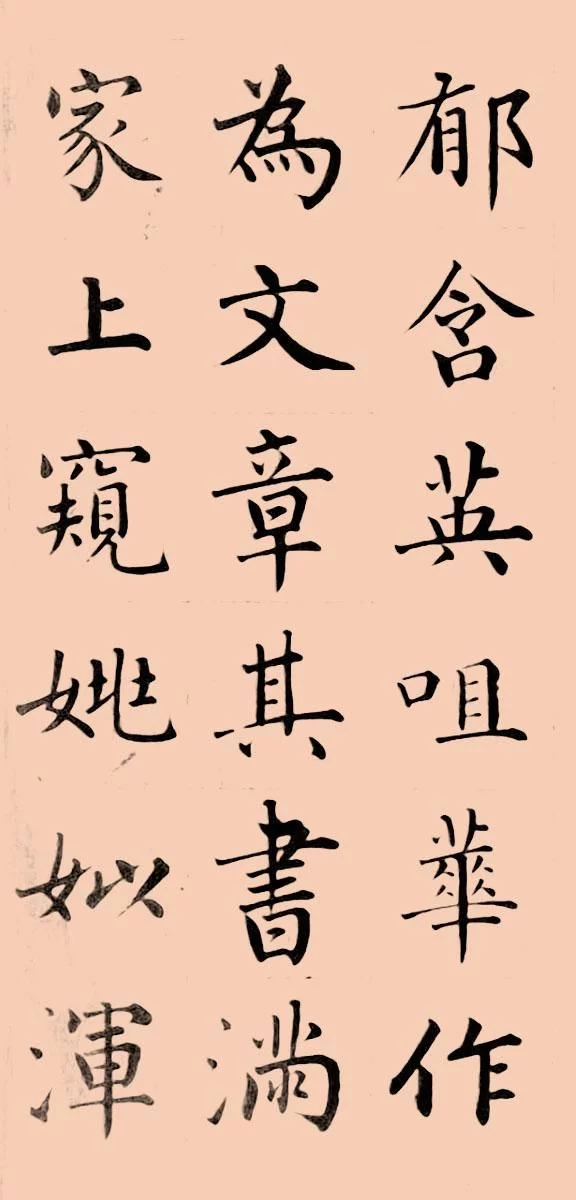 郁含英咀華作
為文章其書滿
家上窺姚姒渾